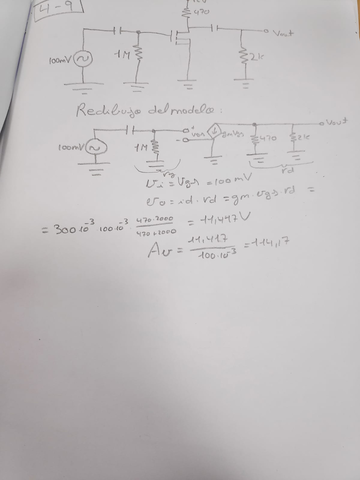 4-9
470
Vout
100mV
1M
2k
Redibujo del modelo:
Vout
100mV
1M
470
2k
rg
rd
vi = vgs = 100 mV
vo = id · rd = gm · vgs · rd =
= 300·10⁻³ 100·10⁻³ 470·2000/470+2000 = 11,417V
Av = 11,417/100·10⁻³ = 114,17